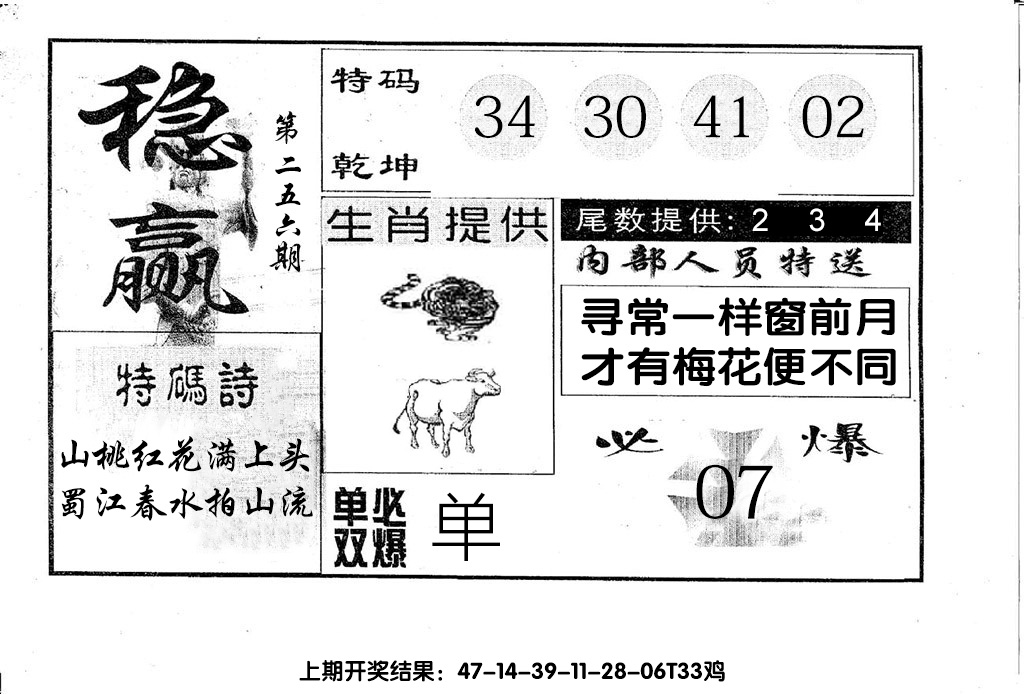 稳赢
第二五六期
特码
乾坤
34 30 41 02
生肖提供
尾数提供: 2 3 4
内部人员特送
寻常一样窗前月
才有梅花便不同
特碼詩
山桃红花满上头
蜀江春水拍山流
单双
必爆
单
必爆
07
上期开奖结果：47-14-39-11-28-06T33鸡